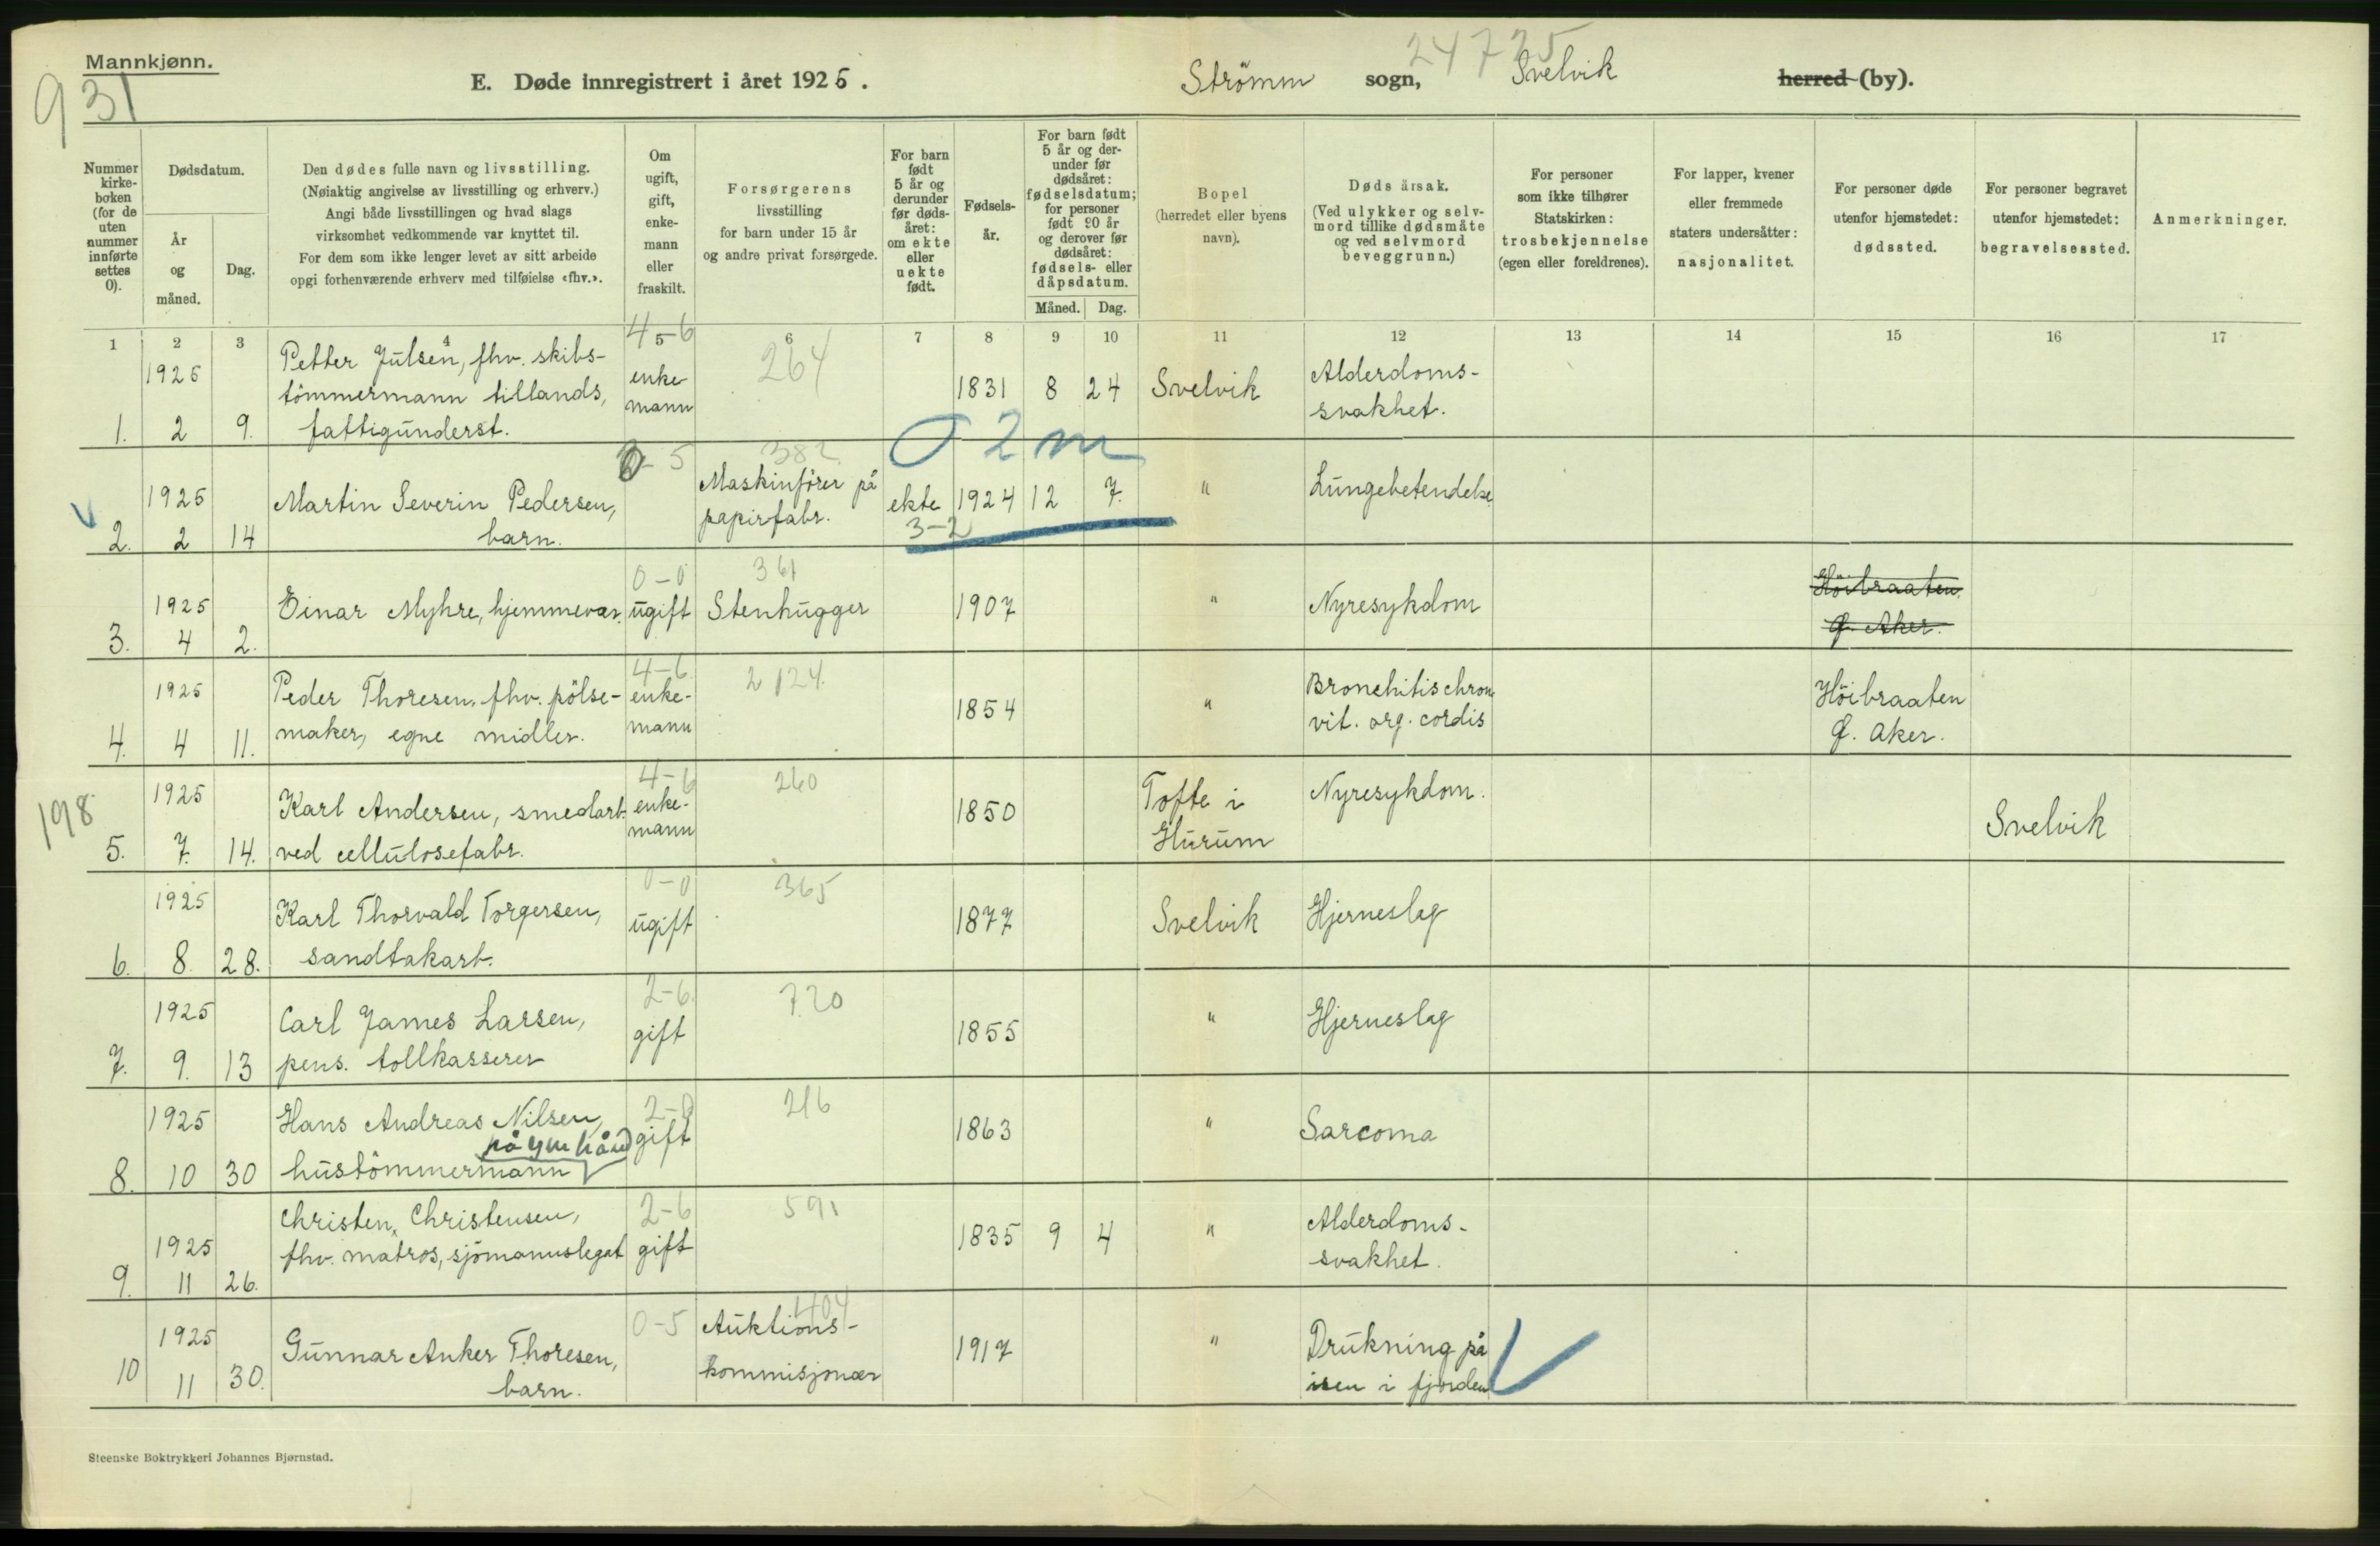 Mannkjønn.
931
E. Døde innregistrert i året 1925.
Strömm sogn, Svelvik herred (by).
24725
Nummer kirke- boken (for de uten nummer innførte settes 0).
Dødsdatum.
År og måned.
Dag.
Den dødes fulle navn og livsstilling.
(Nøiaktig angivelse av livsstilling og erhverv.)
Angi både livsstillingen og hvad slags
virksomhet vedkommende var knyttet til.
For dem som ikke lenger levet av sitt arbeide
opgi forhenværende erhverv med tilføielse «fhv.».
Om ugift, gift, enke- mann eller fraskilt.
Forsørgerens
livsstilling
for barn under 15 år
og andre privat forsørgede.
For barn født 5 år og derunder før døds- året: om ekte eller uekte født.
Fødsels- år.
For barn født 5 år og der- under før dødsåret: fødselsdatum; for personer født 90 år og derover før dødsåret: fødsels- eller dåpsdatum.
Måned. Dag.
Bopel
(herredet eller byens
navn).
Døds årsak.
(Ved ulykker og selv-
mord tillike dødsmåte
og ved selvmord
beveggrunn.)
For personer
som ikke tilhører
Statskirken:
trosbekjennelse
(egen eller foreldrenes).
For lapper, kvener
eller fremmede
staters undersåtter:
nasjonalitet.
For personer døde
utenfor hjemstedet:
dødssted.
For personer begravet
utenfor hjemstedet:
begravelsessted.
Anmerkninger.
1 2 3 4 5 6 7 8 9 10 11 12 13 14 15 16 17
4-6 264
1925 Petter Julsen, fhv. skibs- enke- 1831 8 24 Svelvik Alderdoms-
tömmermann tillands, mann svakhet.
1. 2 9. fattigunderst.
0-5 382 0 2 m
1925 Martin Severin Pedersen, Maskinfører på ekte 1924 12 7. " Lungebetendelse
papirfabr. 3-2
2. 2 14 barn.
0-0 361
1925 Einar Myhre, hjemmevær. ugift Stenhugger 1907 " Nyresykdom Höibraaten
3. 4 2. Ø. Aker.
4-6 2 124.
1925 Peder Thoresen, fhv. pölse- enke- 1854 " Bronchitis chron. Höibraaten
4. 4 11. maker, egne midler. mann vit. org. cordis Ø. Aker.
4-6 260
198
1925 Karl Andersen, smedarb. enke- 1850 Tofte i Nyresykdom. Svelvik
5. 7. 14. ved cellulosefabr. mann Hurum
0-0 365
1925 Karl Thorvald Torgersen, ugift 1877 Svelvik Hjerneslag
6. 8. 28. sandtakarb.
2-6 720
1925 Carl James Larsen, gift 1855 " Hjerneslag
7. 9. 13 pens. tollkasserer
2-0 216
1925 Hans Andreas Nilsen, gift 1863 " Sarcoma
på egen hånd
8. 10 30 hustömmermann
2-6 591
Christen Christensen, 1835 9 4 " Alderdoms-
1925 fhv. matros, sjömannslegat gift svakhet.
9. 11 26.
0-5 404
1925 Gunnar Anker Thoresen, Auktions- 1917 " Drukning på
10 11 30. barn. kommisjonær isen i fjorden
Steenske Boktrykkeri Johannes Bjørnstad.